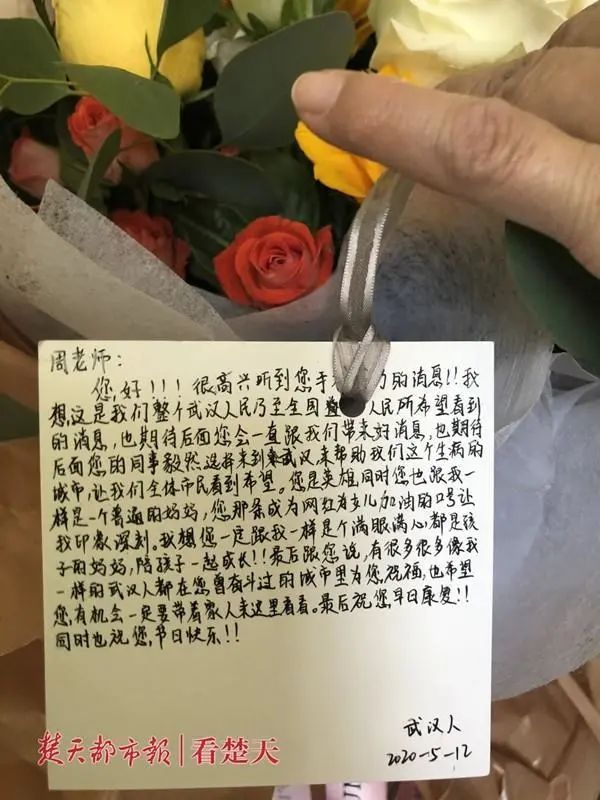 周老师:
您,好!!!很高兴听到您手 的消息!!我
想,这是我们整个武汉人民乃至全国 人民所希望看到
的消息,也期待后面您会一直跟我们带来好消息,也期待
后面您的同事毅然选择来到武汉,来帮助我们这个生病的
城市,让我们全体市民看到希望。您是英雄,同时您也跟我一
样是一个普通的妈妈,您那条成为网红为女儿加油的口号让
我印象深刻。我想您一定跟我一样是个满眼满心都是孩
子的妈妈,陪孩子一起成长!!最后跟您说,有很多很多像我
一样的武汉人都在您曾奋斗过的城市里为您,祝福,也希望
您,有机会一定要带着家人来这里看看。最后祝您,早日康复!!
同时也祝您,节日快乐!!
武汉人
2020-5-12
楚天都市報|看楚天